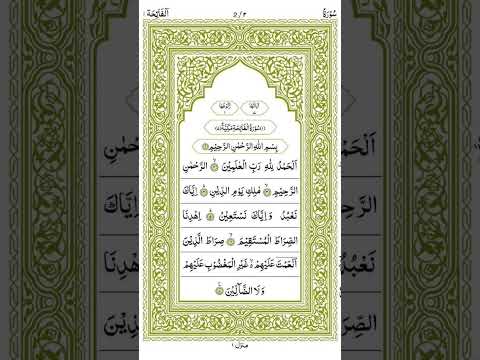 سُوْرَةُ 2/٢ اَلْفَاتِحَة ١
اٰيَاتُهَا ٧ رُكُوْعُهَا ١
(١) سُوْرَةُ الْفَاتِحَةِ مَكِّيَّةٌ (٥)
بِسْمِ اللّٰهِ الرَّحْمٰنِ الرَّحِيْمِ ۝١
اَلْحَمْدُ لِلّٰهِ رَبِّ الْعٰلَمِيْنَ ۝ الرَّحْمٰنِ
الرَّحِيْمِ ۝ مٰلِكِ يَوْمِ الدِّيْنِ ۝ اِيَّاكَ
نَعْبُدُ وَ اِيَّاكَ نَسْتَعِيْنُ ۝ اِهْدِنَا
الصِّرَاطَ الْمُسْتَقِيْمَ ۝ صِرَاطَ الَّذِيْنَ
اَنْعَمْتَ عَلَيْهِمْ ۙ۬ غَيْرِ الْمَغْضُوْبِ عَلَيْهِمْ
وَلَا الضَّآلِّيْنَ ۝
مَنْزِل ١